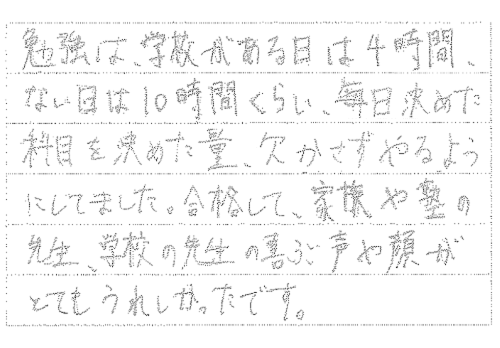 勉強は、学校がある日は4時間、
ない日は10時間くらい、毎日決めた
科目を決めた量、欠かさずやるよう
にしてました。合格して、家族や塾の
先生、学校の先生の喜ぶ声や顔が
とてもうれしかったです。